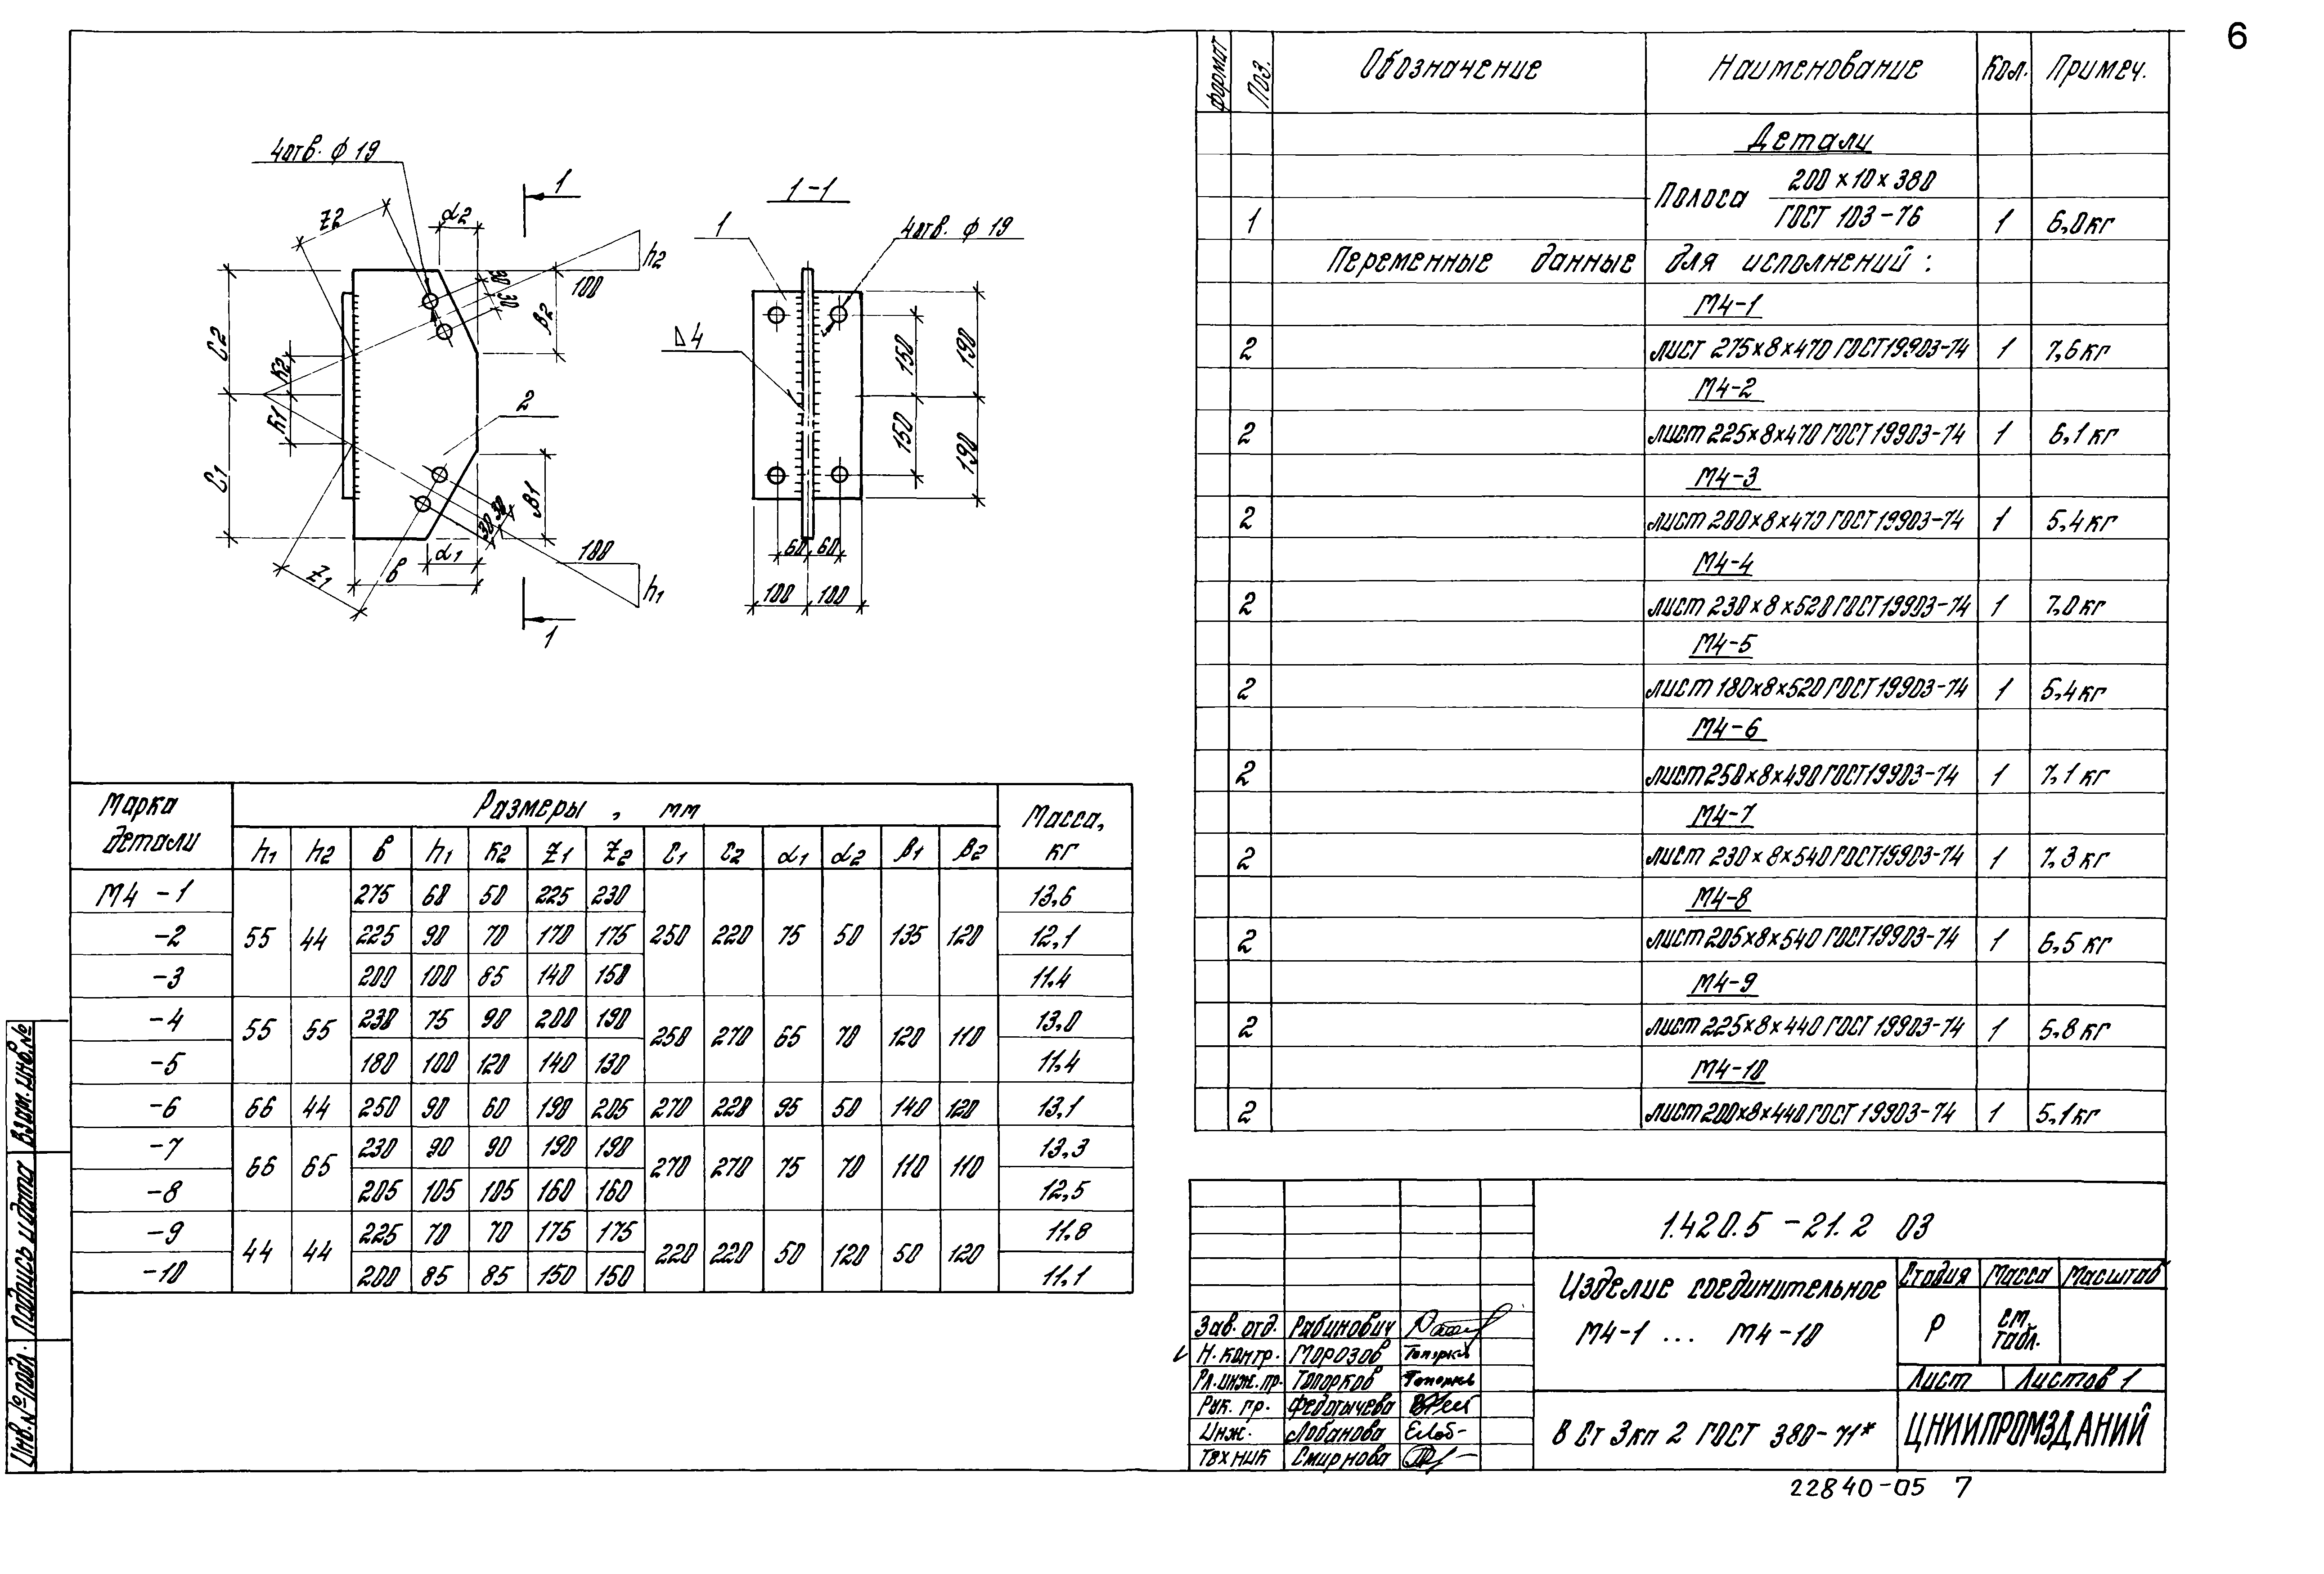 6
4отв. ф 19
1
1-1
z2
α2
1
4отв. ф 19
h2
30
30
100
β2
С2
К2
К1
С1
Δ4
2
150
190
150
190
β1
30
30
α1
в
z1
100
h1
1
60 60
100 100
Марка детали
Размеры , мм
Масса, кг
h1 h2 в h1 к2 z1 z2 с1 с2 α1 α2 β1 β2
М4 -1 55 44 275 68 50 225 230 250 220 75 50 135 120 13,6
-2 225 90 70 170 175 12,1
-3 200 100 85 140 150 11.4
-4 55 55 230 75 90 200 190 250 270 65 70 120 110 13,0
-5 180 100 120 140 130 11,4
-6 66 44 250 90 60 190 205 270 220 95 50 140 120 13,1
-7 66 65 230 90 90 190 190 270 270 75 70 110 110 13,3
-8 205 105 105 160 160 12,5
-9 44 44 225 70 70 175 175 220 220 50 120 50 120 11,8
-10 200 85 85 150 150 11,1
Формат Поз. Обозначение Наименование Кол. Примеч.
Детали
1 Полоса 200×10×380 ГОСТ 103-76 1 6,0кг
Переменные данные для исполнений:
М4-1
2 лист 275×8×470 ГОСТ19903-74 1 7,6кг
М4-2
2 лист 225×8×470 ГОСТ19903-74 1 6,1кг
М4-3
2 лист 200×8×470 ГОСТ19903-74 1 5,4кг
М4-4
2 лист 230×8×520 ГОСТ19903-74 1 7,0кг
М4-5
2 лист 180×8×520 ГОСТ19903-74 1 5,4кг
М4-6
2 лист 250×8×490 ГОСТ19903-74 1 7,1кг
М4-7
2 лист 230×8×540 ГОСТ19903-74 1 7,3кг
М4-8
2 лист 205×8×540 ГОСТ19903-74 1 6,5кг
М4-9
2 лист 225×8×440 ГОСТ 19903-74 1 5,8кг
М4-10
2 лист 200×8×440 ГОСТ19903-74 1 5,1кг
1.420.5 -21.2 03
Изделие соединительное
М4-1 ... М4-10
Стадия Масса Масштаб
Р см. табл.
Лист Листов 1
В Ст 3кп 2 ГОСТ 380-71*
ЦНИИПРОМЗДАНИЙ
Зав. отд. Рабинович
Н. контр. Морозов
Гл. инж. пр. Топорков
Рук. гр. Федотычева
Инж. Лобанова
Техник Смирнова
Взам. инв. №
Подпись и дата
Инв. № подл.
22840-05 7